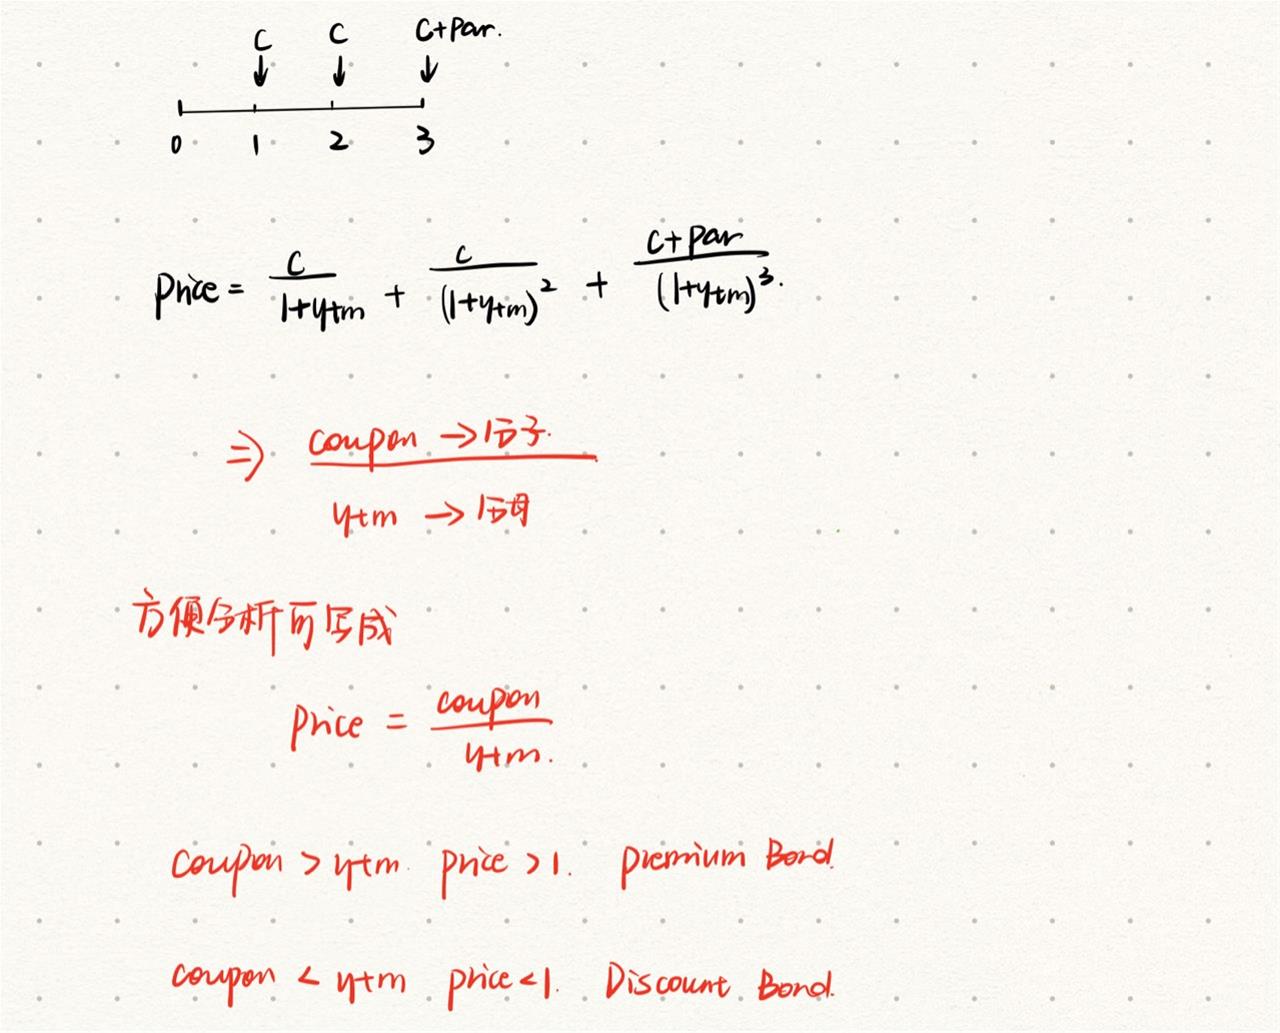 C C C+Par.
0 1 2 3
Price = C/(1+ytm) + C/(1+ytm)^2 + (C+Par)/(1+ytm)^3.
⇒ coupon → 分子.
ytm → 分母
方便分析可写成
Price = coupon/ytm.
coupon > ytm. price > 1. premium Bond.
coupon < ytm price < 1. Discount Bond.